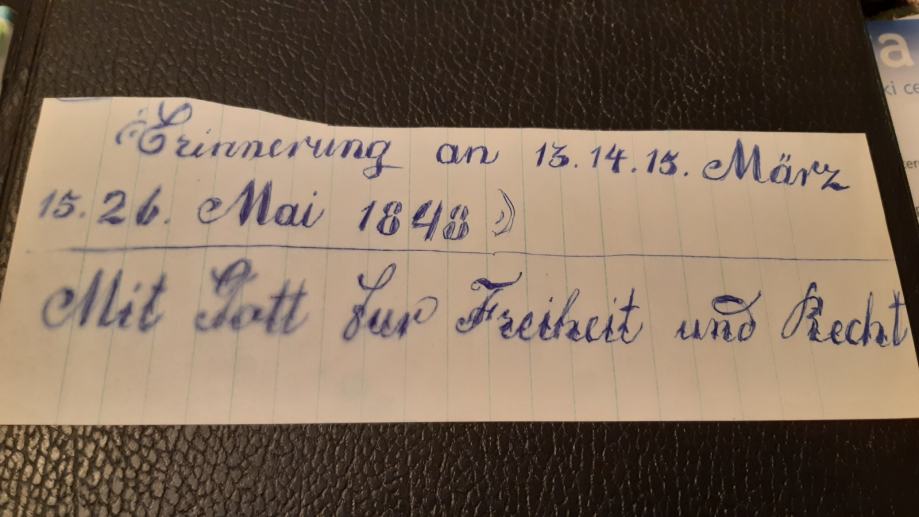 Erinnerung an 13.14.15. März
15.26. Mai 1848
Mit Gott fur Freiheit und Recht
a
ki ce